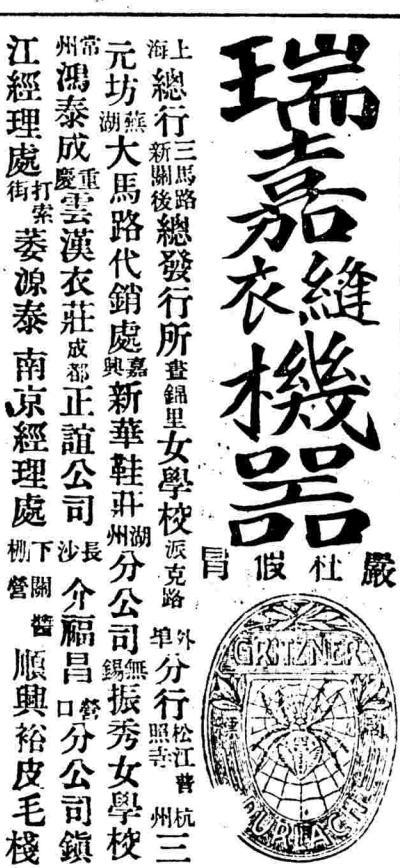 瑞嘉縫衣機器
嚴杜假冒
GRITZNER
商標
DURLACH
上海總行三馬路新關後總發行所晝錦里女學校派克路外埠分行松江普照寺杭州三
元坊蕪湖大馬路代銷處嘉興新華鞋莊湖州分公司無錫振秀女學校
常州鴻泰成重慶雲漢衣莊成都正誼公司長沙介福昌營口分公司鎮
江經理處打索街萎源泰南京經理處下關順興裕皮毛棧